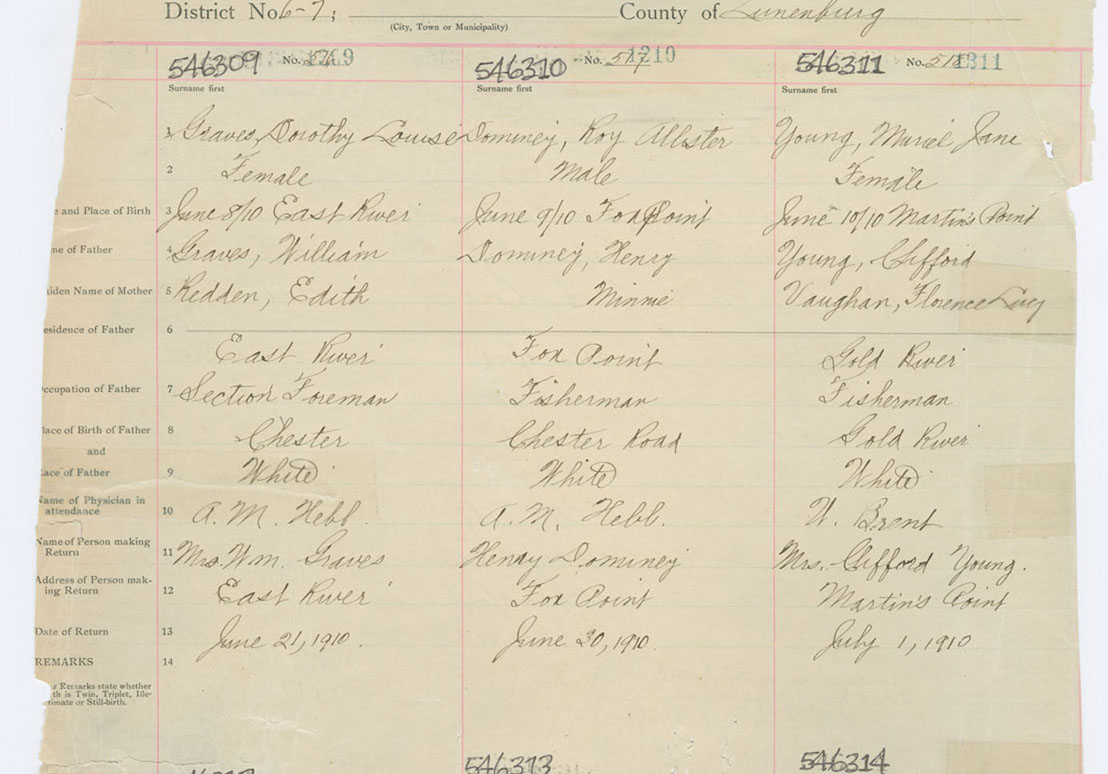 District No 6-7; County of Lunenburg
(City, Town or Municipality)
546309 No. 546310 No. 517 1210 546311 No. 1311
Surname first Surname first Surname first
1 Graves, Dorothy Louise Dominey, Roy Allister Young, Muriel Jane
2 Female Male Female
e and Place of Birth 3 June 8/10 East River June 9/10 Fox Point June 10/10 Martin's Point
me of Father 4 Graves, William Dominey, Henry Young, Clifford
aiden Name of Mother 5 Redden, Edith Minnie Vaughan, Florence Lucy
esidence of Father 6
East River Fox Point Gold River
ccupation of Father 7 Section Foreman Fisherman Fisherman
lace of Birth of Father 8 Chester Chester Road Gold River
and
ace of Father 9 White White White
Name of Physician in
attendance 10 A. M. Hebb. A. M. Hebb. Brent
Name of Person making
Return 11 Mrs. Wm. Graves Henry Dominey Mrs. Clifford Young.
Address of Person mak-
ing Return 12 East River Fox Point Martin's Point
Date of Return 13 June 21, 1910. June 30, 1910. July 1, 1910
REMARKS 14
r Remarks state whether
th is Twin, Triplet, Ille-
timate or Still-birth.
546313 546314